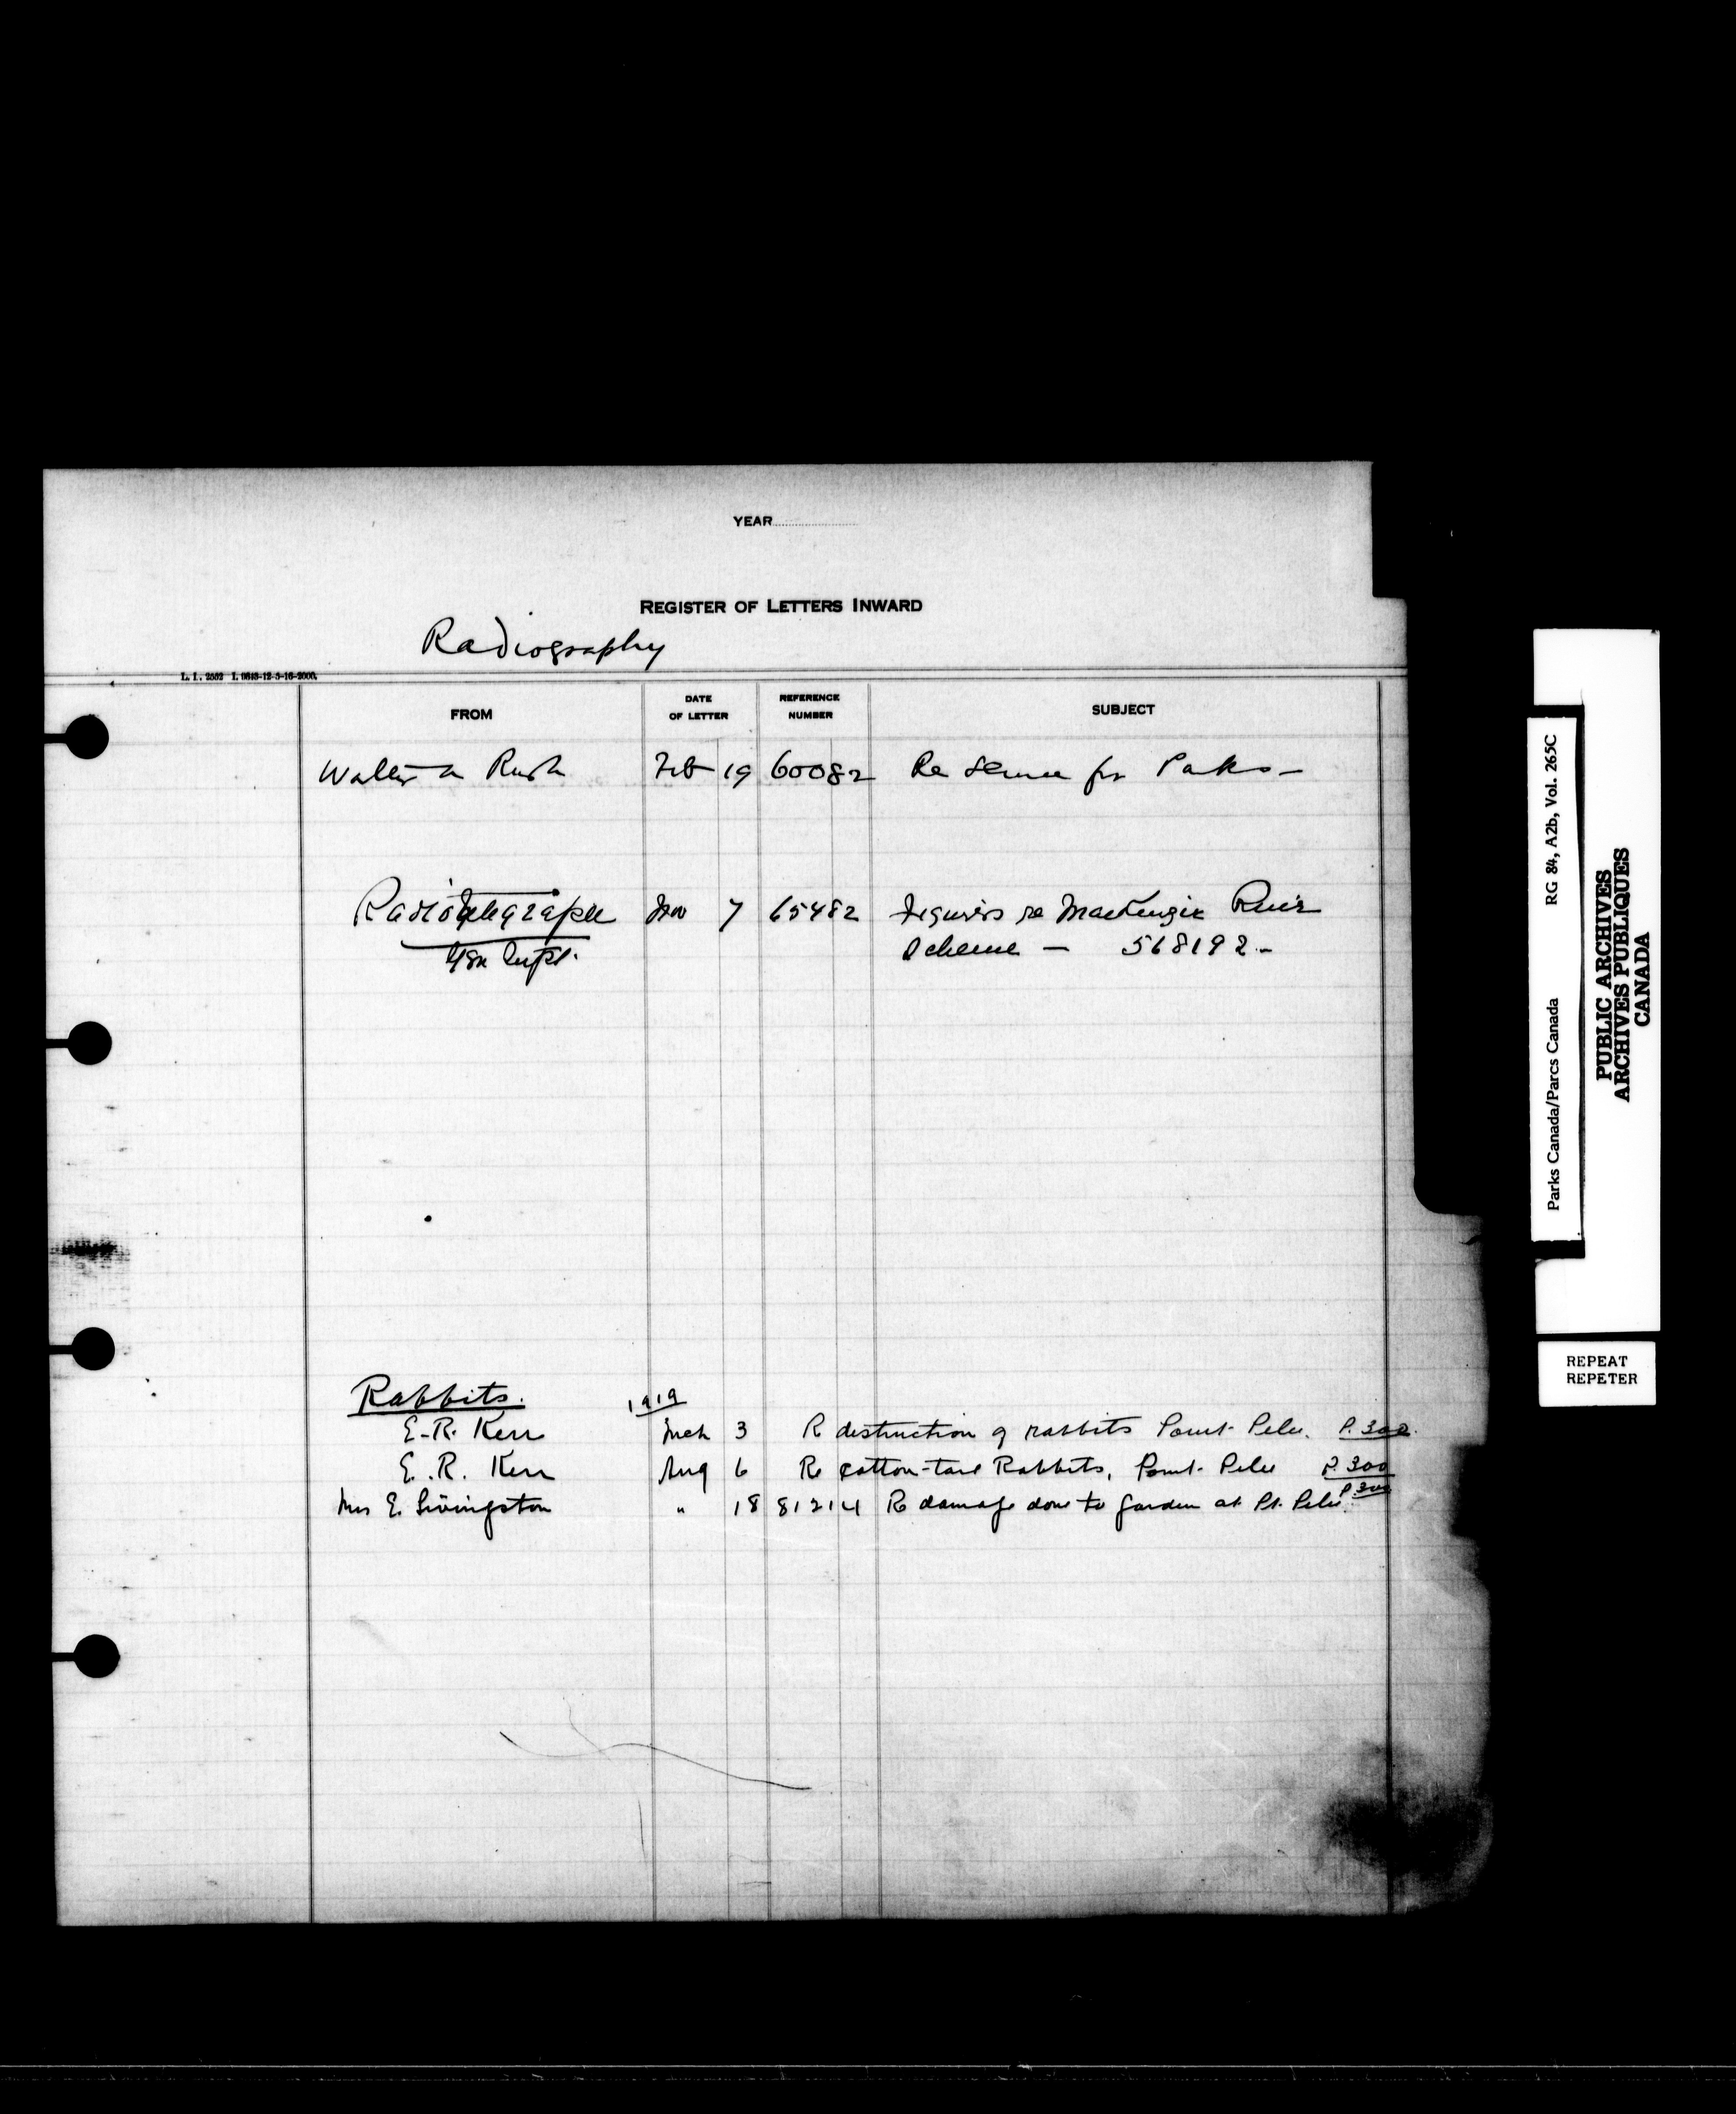 YEAR
REGISTER OF LETTERS INWARD
Radiography
L. I. 2552 I. 9843-12-5-16-2000.
FROM DATE OF LETTER REFERENCE NUMBER SUBJECT
Walter Rush Feb 19 60082 Re for Parks -
Radiotelegraph Nov 7 65482 Figures re MacKenzie River
Gen Supt. Scheme - 568192 -
Rabbits. 1919
E. R. Kerr Mch 3 R destruction of rabbits Point Pelee. P. 300.
E. R. Kerr Aug 6 Re cotton-tail Rabbits, Point Pelee P 300
Mrs E. Livingston " 18 81214 Re damage done to garden at Pt. Pelee. P. 300
RG 84, A2b, Vol. 265C
Parks Canada/Parcs Canada
PUBLIC ARCHIVES
ARCHIVES PUBLIQUES
CANADA
REPEAT
REPETER